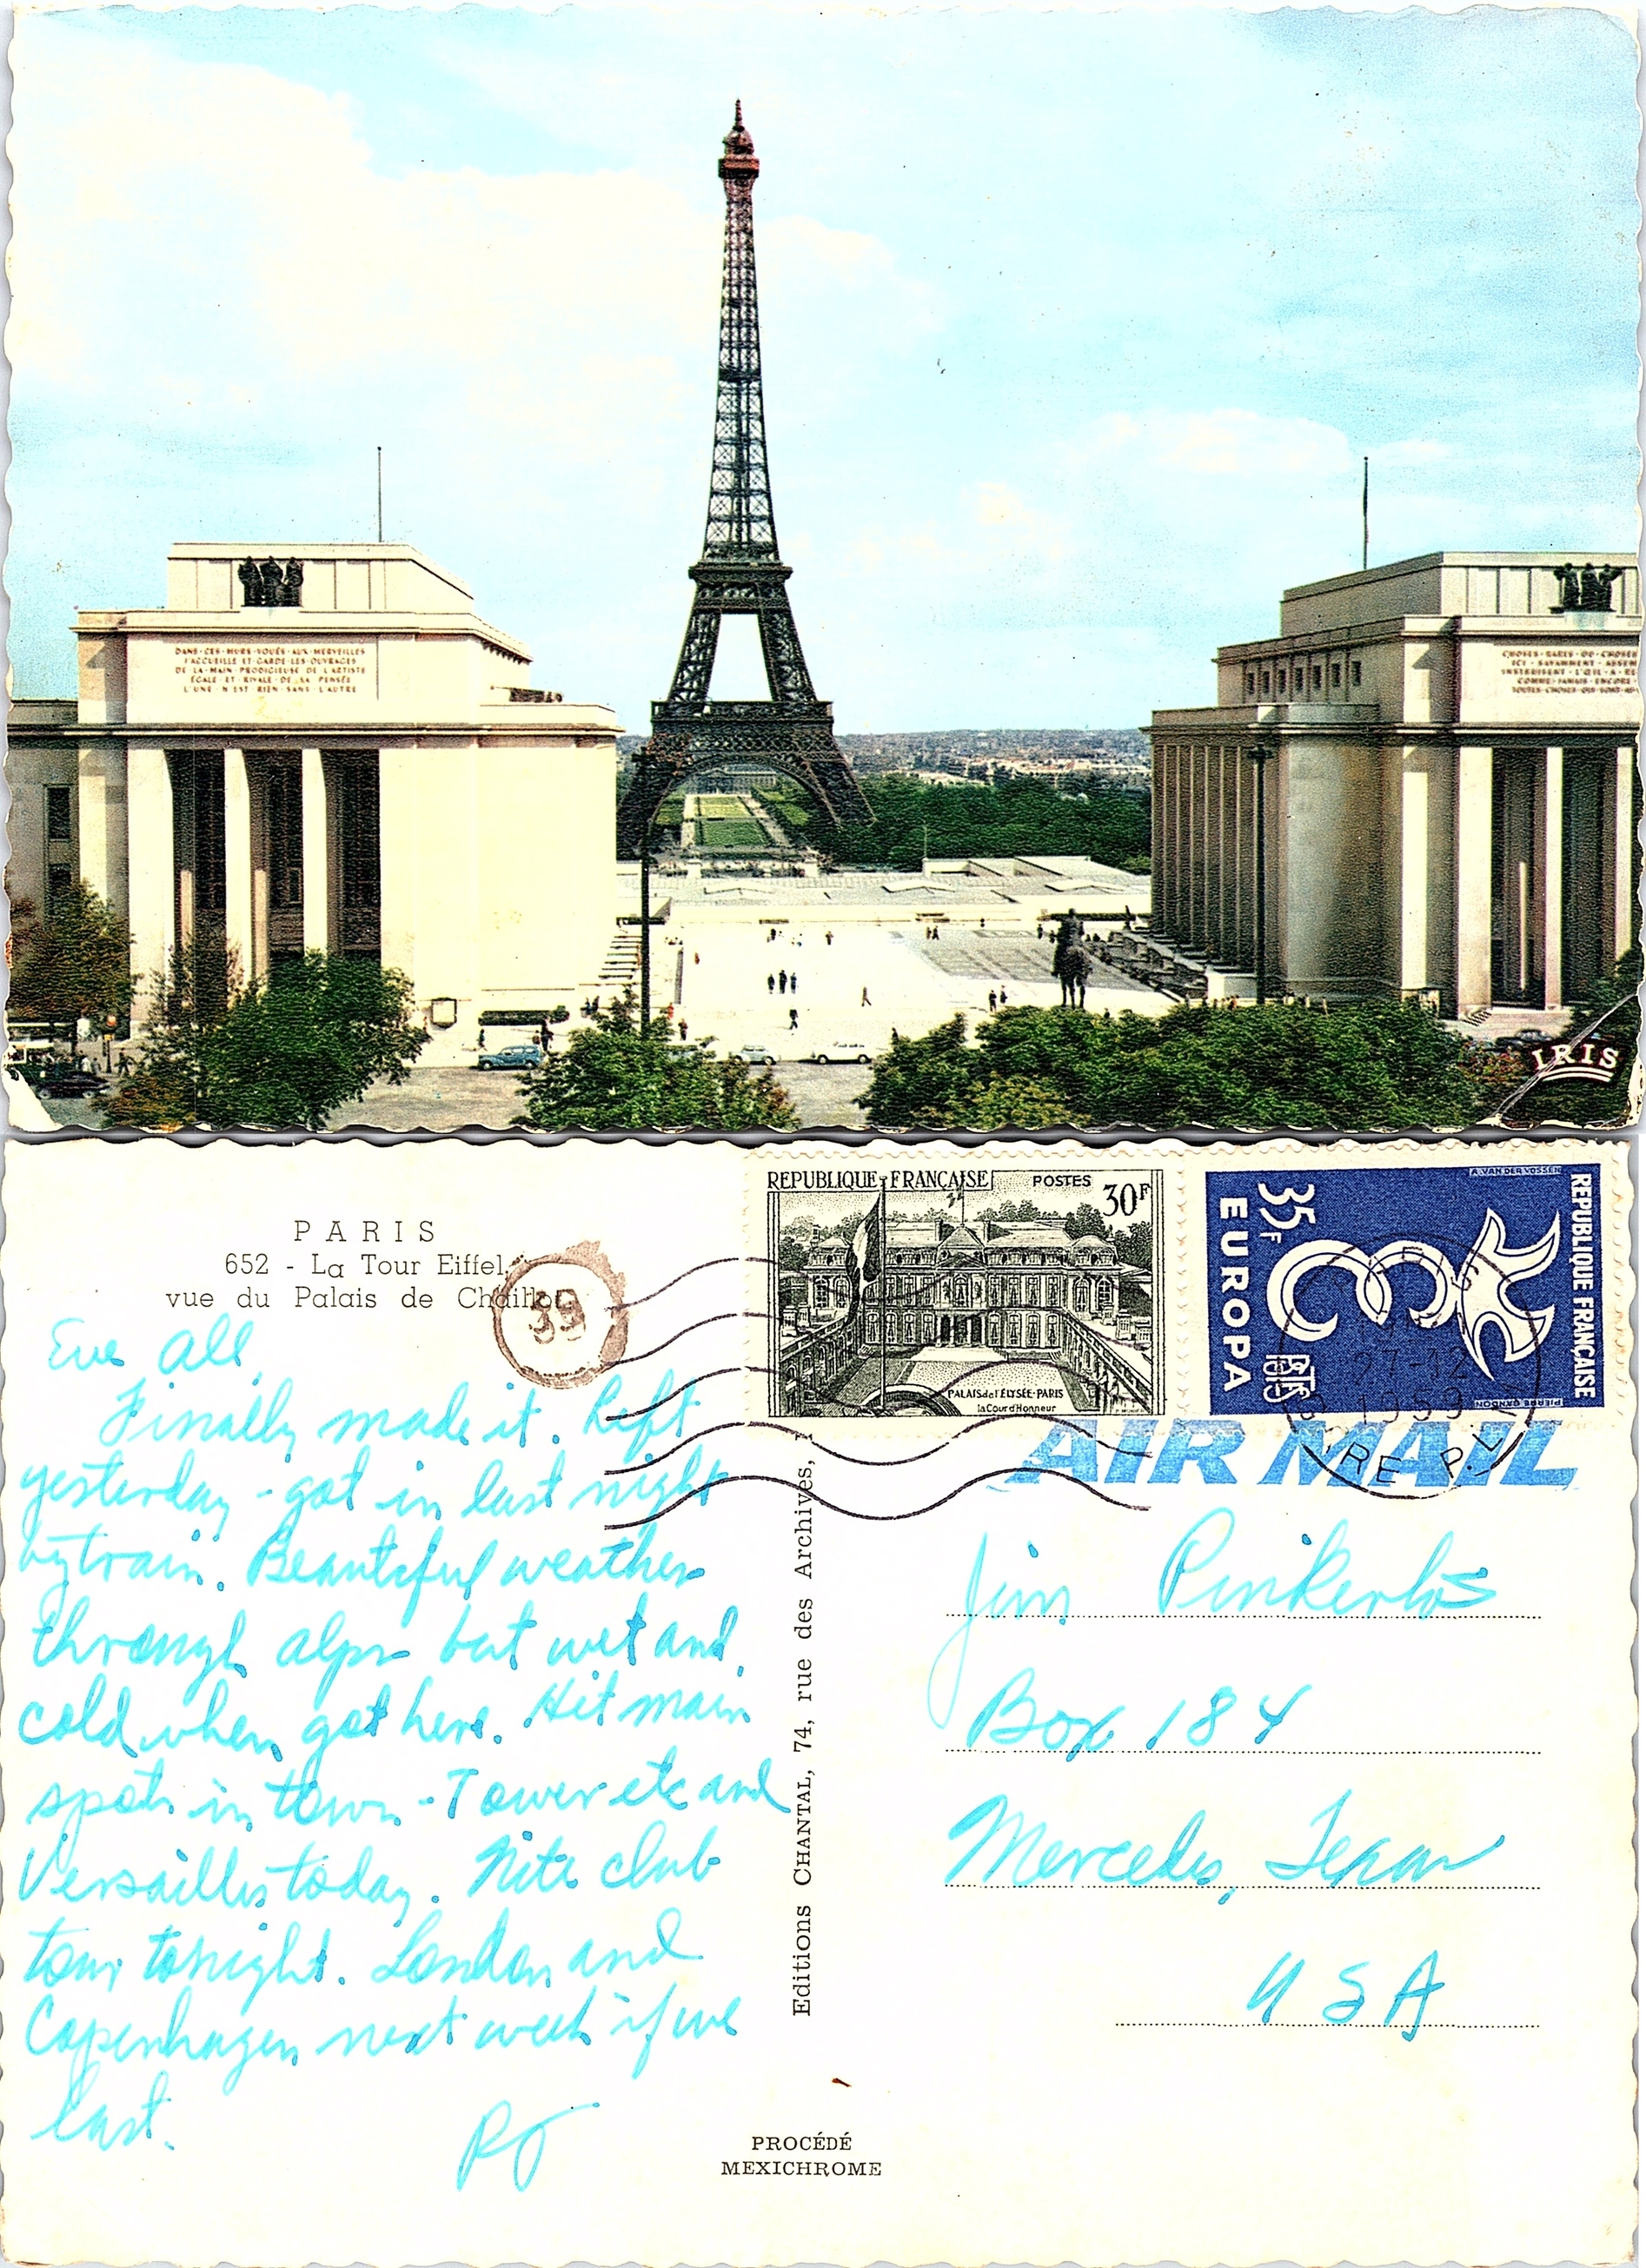 DANS·CES·MURS·VOUÉS·AUX·MERVEILLES
J'ACCUEILLE·ET·GARDE·LES·OUVRAGES
DE·LA·MAIN·PRODIGIEUSE·DE·L'ARTISTE
ÉGALE·ET·RIVALE·DE·SA·PENSÉE
L'UNE·N'EST·RIEN·SANS·L'AUTRE
CHOSES·RARES·OU·CHOSES
ICI·SAVAMMENT·ASSEM
INSTRUISENT·L'ŒIL·A·RE
COMME·JAMAIS·ENCORE
TOUTES·CHOSES·QUI·SONT·AU
IRIS
PARIS
652 - La Tour Eiffel,
vue du Palais de Chaillot
39
REPUBLIQUE FRANÇAISE
POSTES
30F
PALAIS de l'ÉLYSÉE·PARIS
la Cour d'Honneur
A. VAN DER VOSSEN
REPUBLIQUE FRANÇAISE
35F
EUROPA
POSTES
PIERRE GANDON
27-12
1959
RE P.V
AIR MAIL
Eve all,
Finally made it. Left
yesterday - got in last night
by train. Beautiful weather
through alps but wet and
cold when got here. Hit main
spots in town - Tower etc and
Versailles today. Nite club
tour tonight. London and
Copenhagen next week if we
last.
Editions CHANTAL, 74, rue des Archives,
Jim Pinkerton
Box 184
Mercedes, Texas
USA
PROCÉDÉ
MEXICHROME